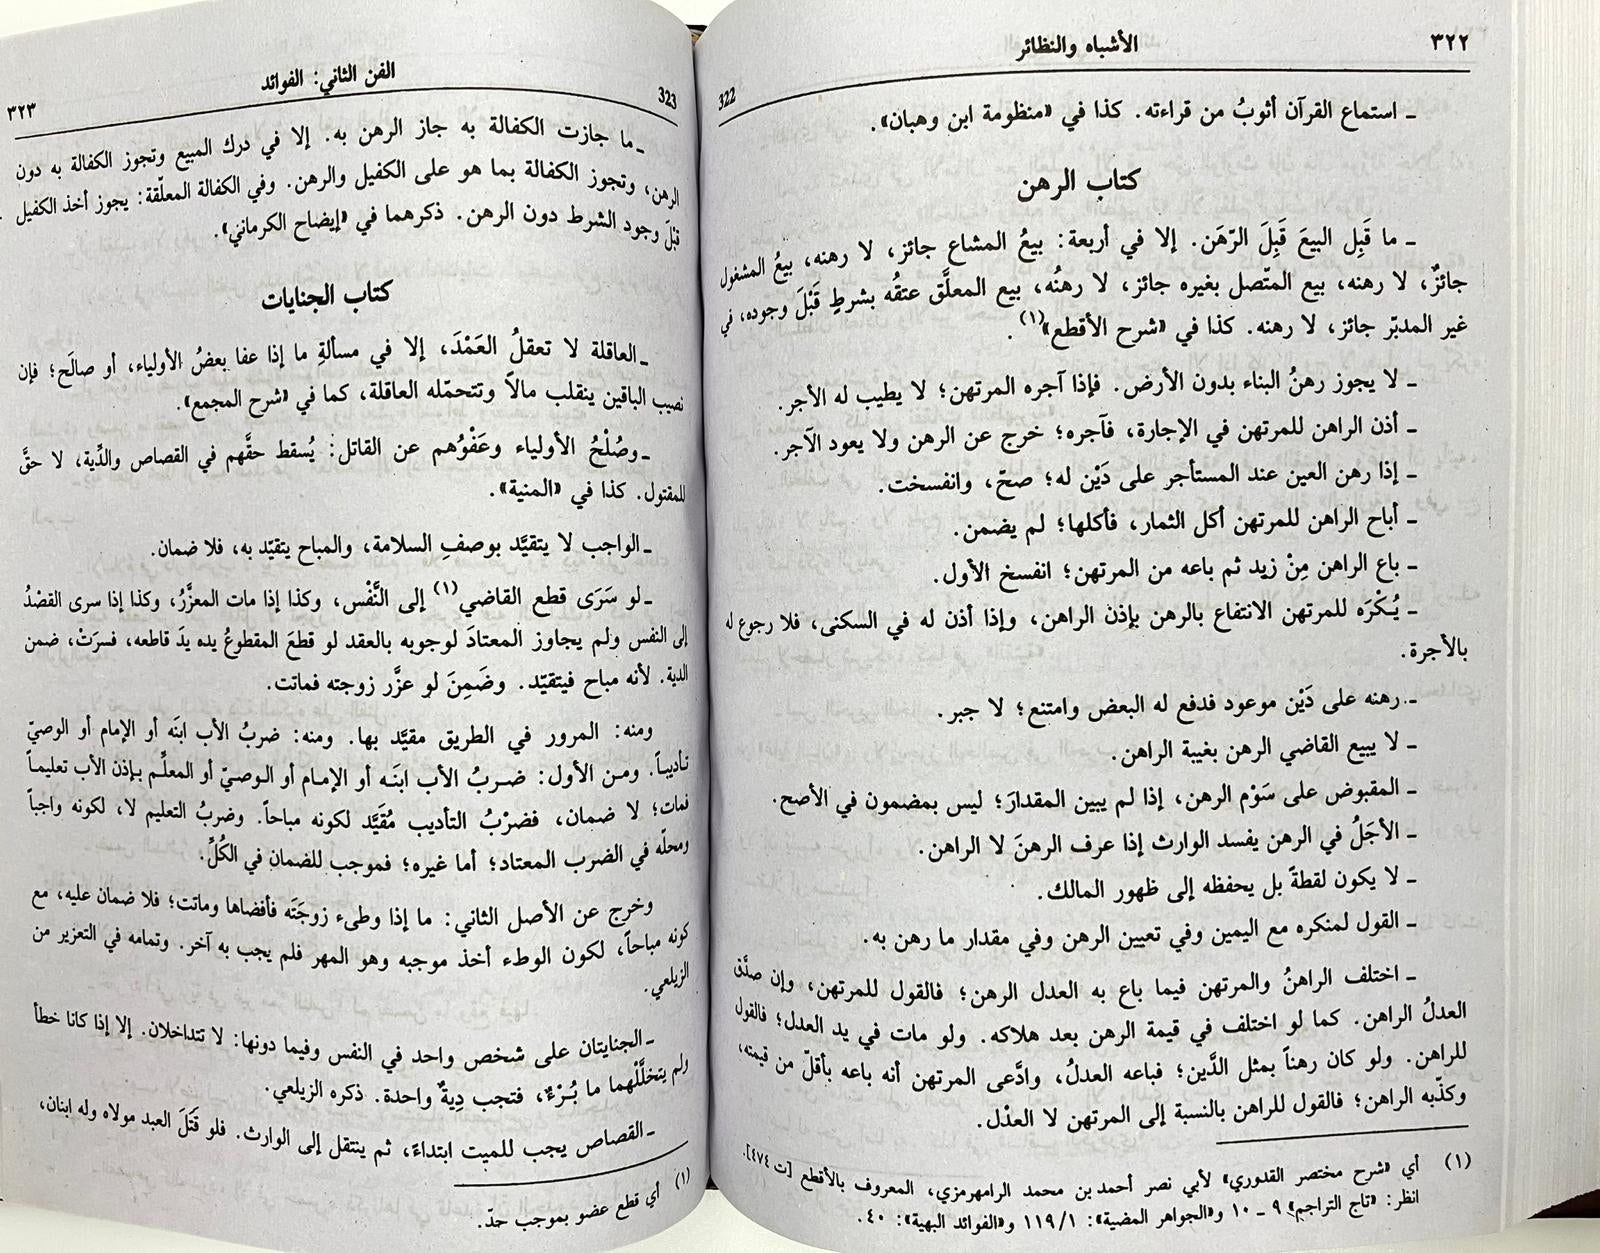 ٣٢٢
الأشباه والنظائر
322
ـ استماع القرآن أثوبُ من قراءته. كذا في «منظومة ابن وهبان».
كتاب الرهن
ـ ما قَبِل البيعَ قَبِلَ الرّهَن. إلا في أربعة: بيعُ المشاع جائز، لا رهنه، بيعُ المشغول
جائزٌ، لا رهنه، بيع المتّصل بغيره جائز، لا رهنُه، بيع المعلَّق عتقُه بشرطٍ قَبْلَ وجوده، في
غير المدبّر جائز، لا رهنه. كذا في «شرح الأقطع»(١).
ـ لا يجوز رهنُ البناء بدون الأرض. فإذا آجره المرتهن؛ لا يطيب له الأجر.
ـ أذن الراهن للمرتهن في الإجارة، فآجره؛ خرج عن الرهن ولا يعود الآجر.
ـ إذا رهن العين عند المستأجر على دَيْن له؛ صحّ، وانفسخت.
ـ أباح الراهن للمرتهن أكل الثمار، فأكلها؛ لم يضمن.
ـ باع الراهن مِنْ زيد ثم باعه من المرتهن؛ انفسخ الأول.
ـ يُكْرَه للمرتهن الانتفاع بالرهن بإذن الراهن، وإذا أذن له في السكنى، فلا رجوع له
بالأجرة.
ـ رهنه على دَيْن موعود فدفع له البعض وامتنع؛ لا جبر.
ـ لا يبيع القاضي الرهن بغيبة الراهن.
ـ المقبوض على سَوْم الرهن، إذا لم يبين المقدارَ؛ ليس بمضمون في الأصح.
ـ الأجَلُ في الرهن يفسد الوارث إذا عرف الرهنَ لا الراهن.
ـ لا يكون لقطةً بل يحفظه إلى ظهور المالك.
ـ القول لمنكره مع اليمين وفي تعيين الرهن وفي مقدار ما رهن به.
ـ اختلف الراهنُ والمرتهن فيما باع به العدل الرهن؛ فالقول للمرتهن، وإن صدَّق
العدلُ الراهن. كما لو اختلف في قيمة الرهن بعد هلاكه. ولو مات في يد العدل؛ فالقول
للراهن. ولو كان رهناً بمثل الدَّين؛ فباعه العدلُ، وادَّعى المرتهن أنه باعه بأقلّ من قيمته،
وكذّبه الراهن؛ فالقول للراهن بالنسبة إلى المرتهن لا العدْل.
(١) أي «شرح مختصر القدوري» لأبي نصر أحمد بن محمد الرامهرمزي، المعروف بالأقطع [ت ٤٧٤].
انظر: «تاج التراجم» ٩ ـ ١٠ و«الجواهر المضية»: ١١٩/١ و«الفوائد البهية»: ٤٠.
323
الفن الثاني: الفوائد
٣٢٣
ـ ما جازت الكفالة به جاز الرهن به. إلا في درك المبيع وتجوز الكفالة به دون
الرهن، وتجوز الكفالة بما هو على الكفيل والرهن. وفي الكفالة المعلّقة: يجوز أخذ الكفيل
قبْلَ وجود الشرط دون الرهن. ذكرهما في «إيضاح الكرماني».
كتاب الجنايات
ـ العاقلة لا تعقلُ العَمْدَ، إلا في مسألةِ ما إذا عفا بعضُ الأولياء، أو صالَح؛ فإن
نصيب الباقين ينقلب مالاً وتتحمّله العاقلة، كما في «شرح المجمع».
ـ وصُلْحُ الأولياء وعَفْوُهم عن القاتل: يُسقط حقَّهم في القصاص والدِّية، لا حقَّ
للمقتول. كذا في «المنية».
ـ الواجب لا يتقيَّد بوصفِ السلامة، والمباح يتقيّد به، فلا ضمان.
ـ لو سَرَى قطع القاضي(١) إلى النَّفْس، وكذا إذا مات المعزَّرُ، وكذا إذا سرى القصْدُ
إلى النفس ولم يجاوز المعتادَ لوجوبه بالعقد لو قطعَ المقطوعُ يده يدَ قاطعه، فسرَتْ، ضمن
الدية. لأنه مباح فيتقيّد. وضَمِنَ لو عزَّر زوجته فماتت.
ومنه: المرور في الطريق مقيَّد بها. ومنه: ضربُ الأب ابنَه أو الإمام أو الوصيّ
تأديباً. ومن الأول: ضربُ الأب ابنَه أو الإمام أو الوصيّ أو المعلِّم بإذن الأب تعليماً
فمات؛ لا ضمان، فضرْبُ التأديب مُقَيَّد لكونه مباحاً. وضربُ التعليم لا، لكونه واجباً
ومحلّه في الضرب المعتاد؛ أما غيره؛ فموجب للضمان في الكُلِّ.
وخرج عن الأصل الثاني: ما إذا وطىء زوجَتَه فأفضاها وماتت؛ فلا ضمان عليه، مع
كونه مباحاً، لكون الوطء أخذ موجبه وهو المهر فلم يجب به آخر. وتمامه في التعزير من
الزيلعي.
ـ الجنايتان على شخص واحد في النفس وفيما دونها: لا تتداخلان. إلا إذا كانا خطأ
ولم يتخلَّلْهما ما بُرْءٌ، فتجب دِيةٌ واحدة. ذكره الزيلعي.
ـ القصاص يجب للميت ابتداءً، ثم ينتقل إلى الوارث. فلو قَتَلَ العبد مولاه وله ابنان،
(١) أي قطع عضو بموجب حدّ.